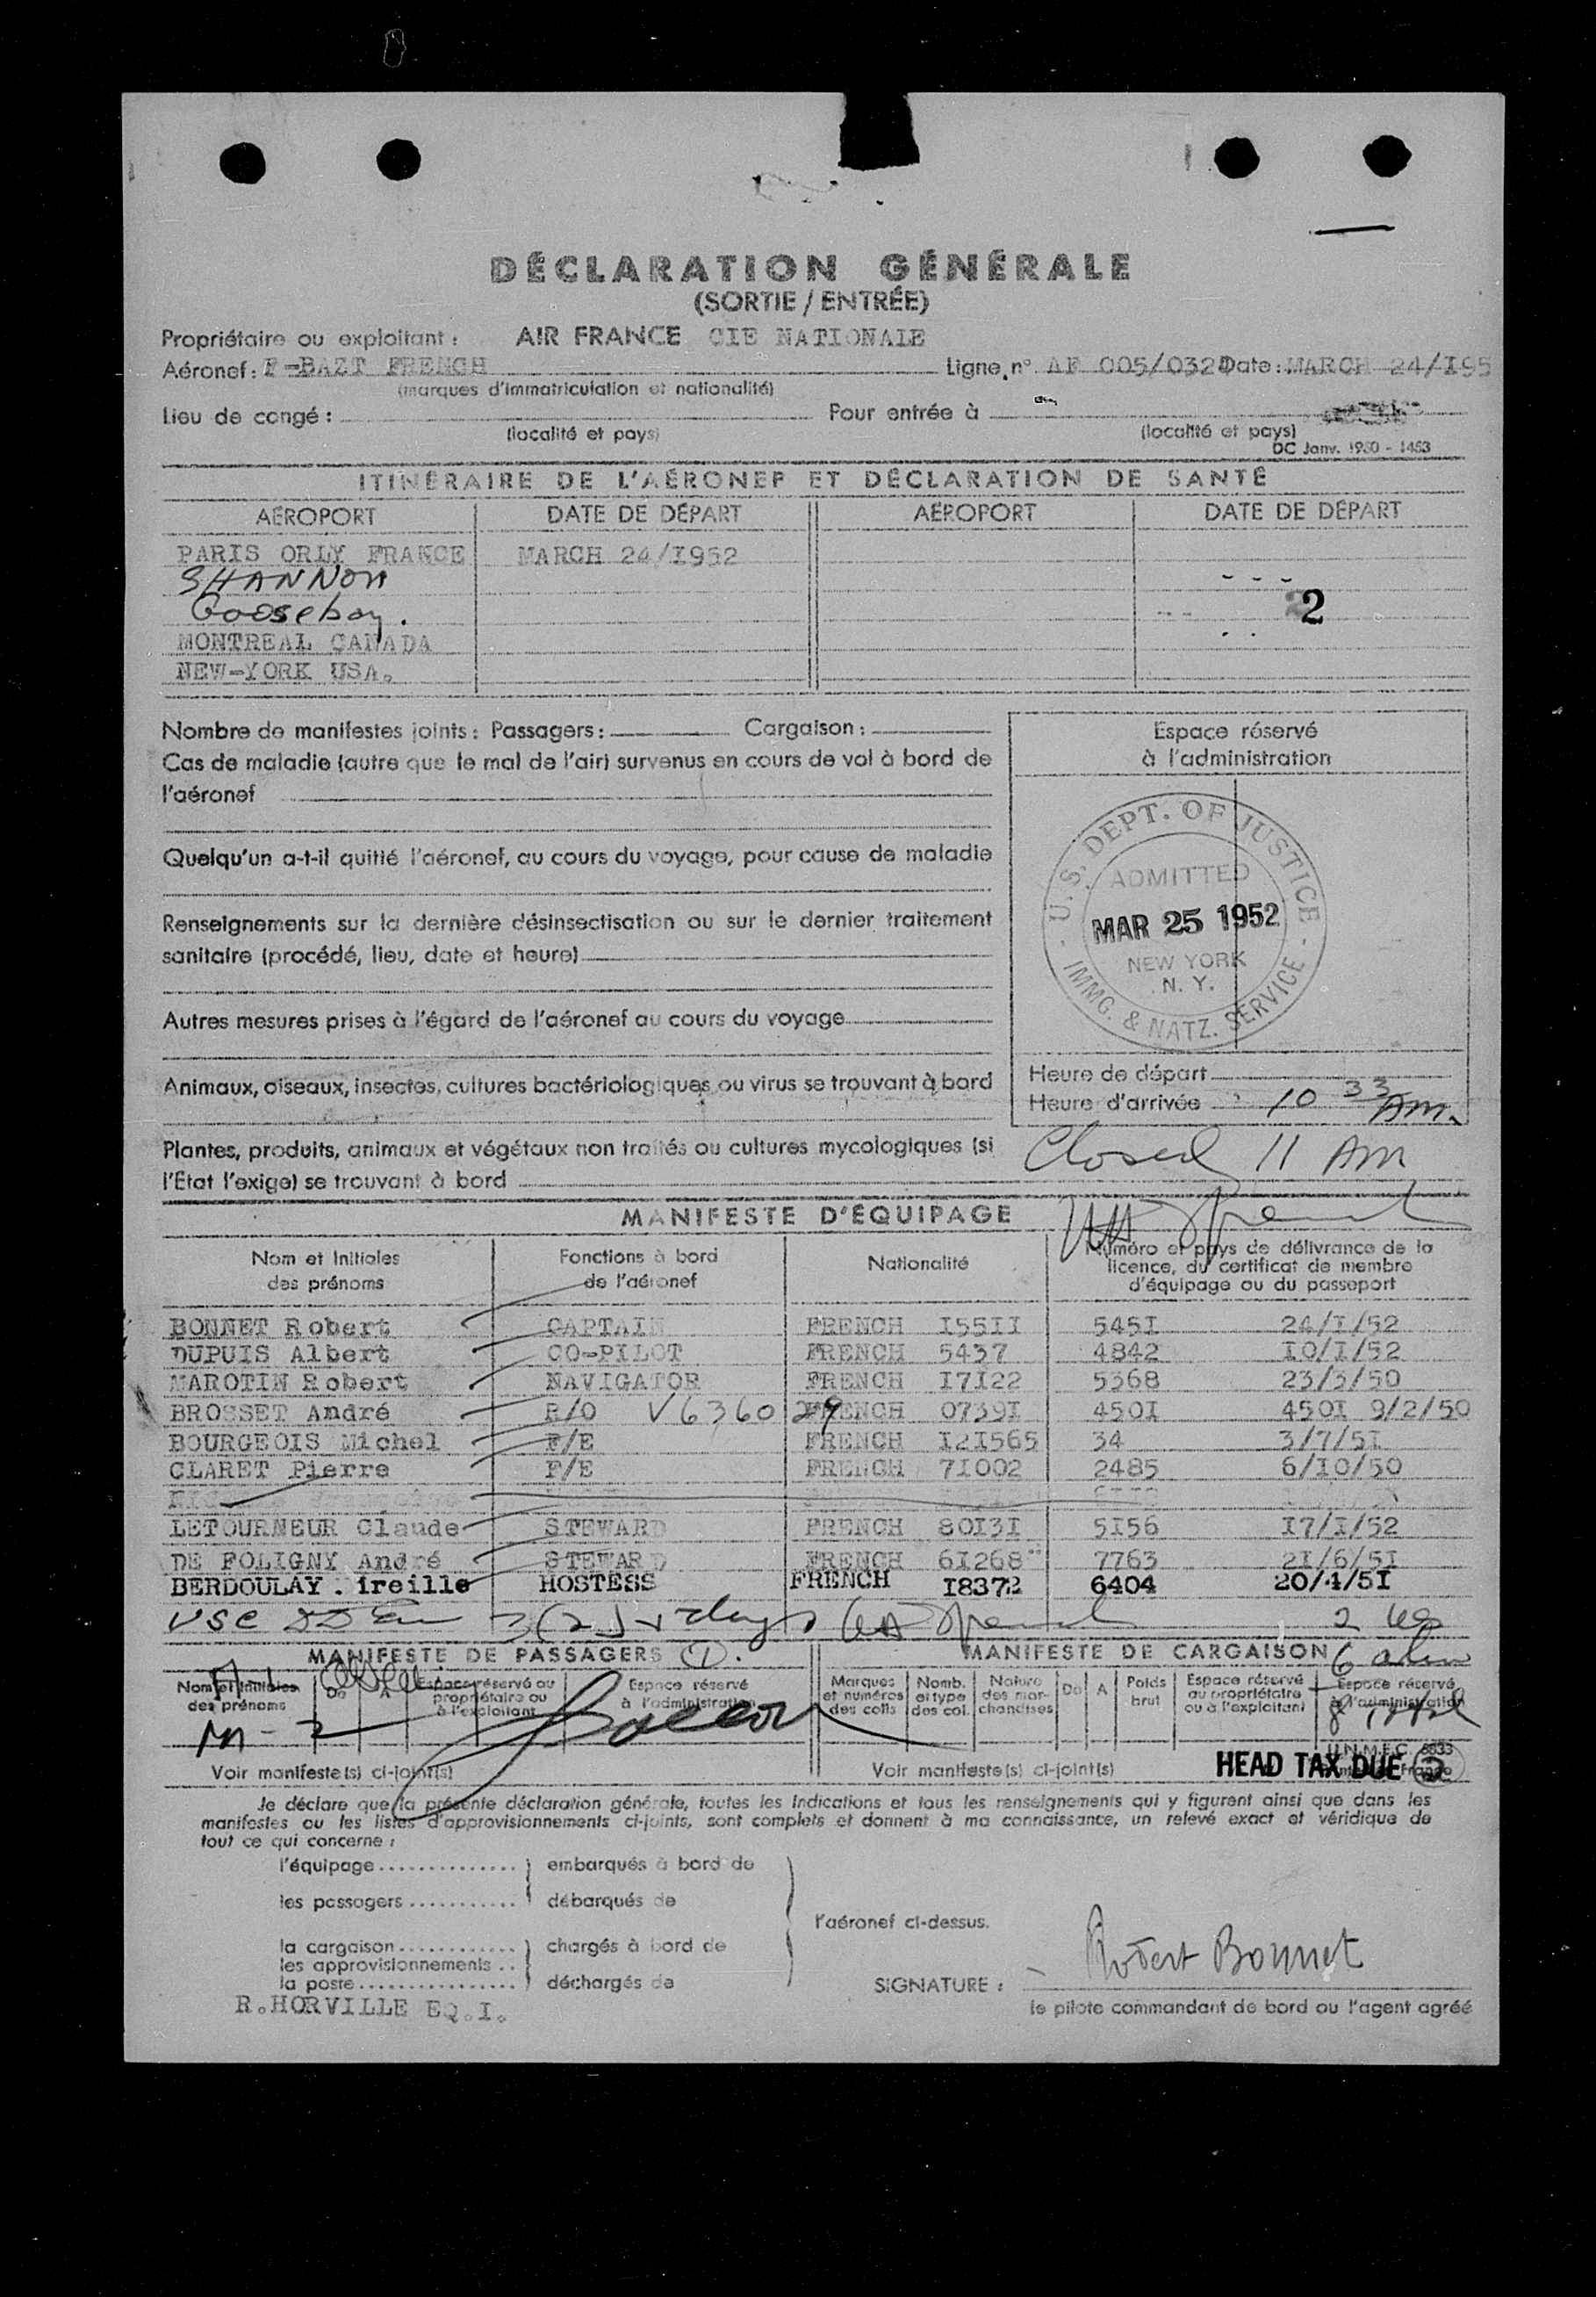 DÉCLARATION GÉNÉRALE
(SORTIE / ENTRÉE)
Propriétaire ou exploitant : AIR FRANCE CIE NATIONALE
Aéronef : F-BAZT FRENCH Ligne n° AF 005/0324 Date : MARCH 24/I95
(marques d'immatriculation et nationalité)
Lieu de congé : Pour entrée à
(localité et pays) (localité et pays)
DC Janv. 1950 - 1453
ITINÉRAIRE DE L'AÉRONEF ET DÉCLARATION DE SANTÉ
AÉROPORT DATE DE DÉPART AÉROPORT DATE DE DÉPART
PARIS ORLY FRANCE MARCH 24/I952
SHANNON
Goosebay. 2
MONTREAL CANADA
NEW-YORK USA.
Nombre de manifestes joints : Passagers : Cargaison :
Cas de maladie (autre que le mal de l'air) survenus en cours de vol à bord de
l'aéronef
Quelqu'un a-t-il quitté l'aéronef, au cours du voyage, pour cause de maladie
Renseignements sur la dernière désinsectisation ou sur le dernier traitement
sanitaire (procédé, lieu, date et heure)
Autres mesures prises à l'égard de l'aéronef au cours du voyage
Animaux, oiseaux, insectes, cultures bactériologiques ou virus se trouvant à bord
Plantes, produits, animaux et végétaux non traités ou cultures mycologiques (si
l'État l'exige) se trouvant à bord
Espace réservé
à l'administration
U.S. DEPT. OF JUSTICE
ADMITTED
MAR 25 1952
NEW YORK
N. Y.
IMMG. & NATZ. SERVICE
Heure de départ
Heure d'arrivée 10 33 AM.
Closed 11 AM
MANIFESTE D'ÉQUIPAGE
Nom et Initiales des prénoms
Fonctions à bord de l'aéronef
Nationalité
Numéro et pays de délivrance de la
licence, du certificat de membre
d'équipage ou du passeport
BONNET Robert CAPTAIN FRENCH I55II 545I 24/I/52
DUPUIS Albert CO-PILOT FRENCH 5437 4842 I0/I/52
MAROTIN Robert NAVIGATOR FRENCH I7I22 5368 23/3/50
BROSSET André R/O V636029 FRENCH 0739I 450I 450I 9/2/50
BOURGEOIS Michel F/E FRENCH I2I565 34 3/7/5I
CLARET Pierre F/E FRENCH 7I002 2485 6/I0/50
LETOURNEUR Claude STEWARD FRENCH 80I3I 5I56 I7/I/52
DE FOLIGNY André STEWARD FRENCH 6I268 7763 2I/6/5I
BERDOULAY . ireille HOSTESS FRENCH I8372 6404 20/4/5I
MANIFESTE DE PASSAGERS 1. MANIFESTE DE CARGAISON
Nom et Initiales des prénoms
De
A
Espace réservé au propriétaire ou à l'exploitant
Espace réservé à l'administration
Marques et numéros des colis
Nomb. et type des col.
Nature des marchandises
De
A
Poids brut
Espace réservé au propriétaire ou à l'exploitant
Espace réservé à l'administration
M - 2
Voir manifeste(s) ci-joint(s) Voir manifeste(s) ci-joint(s)
HEAD TAX DUE
Je déclare que la présente déclaration générale, toutes les indications et tous les renseignements qui y figurent ainsi que dans les
manifestes ou les listes d'approvisionnements ci-joints, sont complets et donnent à ma connaissance, un relevé exact et véridique de
tout ce qui concerne :
l'équipage .............. embarqués à bord de
les passagers ........... débarqués de
l'aéronef ci-dessus.
la cargaison ............ chargés à bord de
les approvisionnements ..
la poste ................ déchargés de
SIGNATURE : Robert Bonnet
R.HORVILLE EQ.I.
le pilote commandant de bord ou l'agent agréé